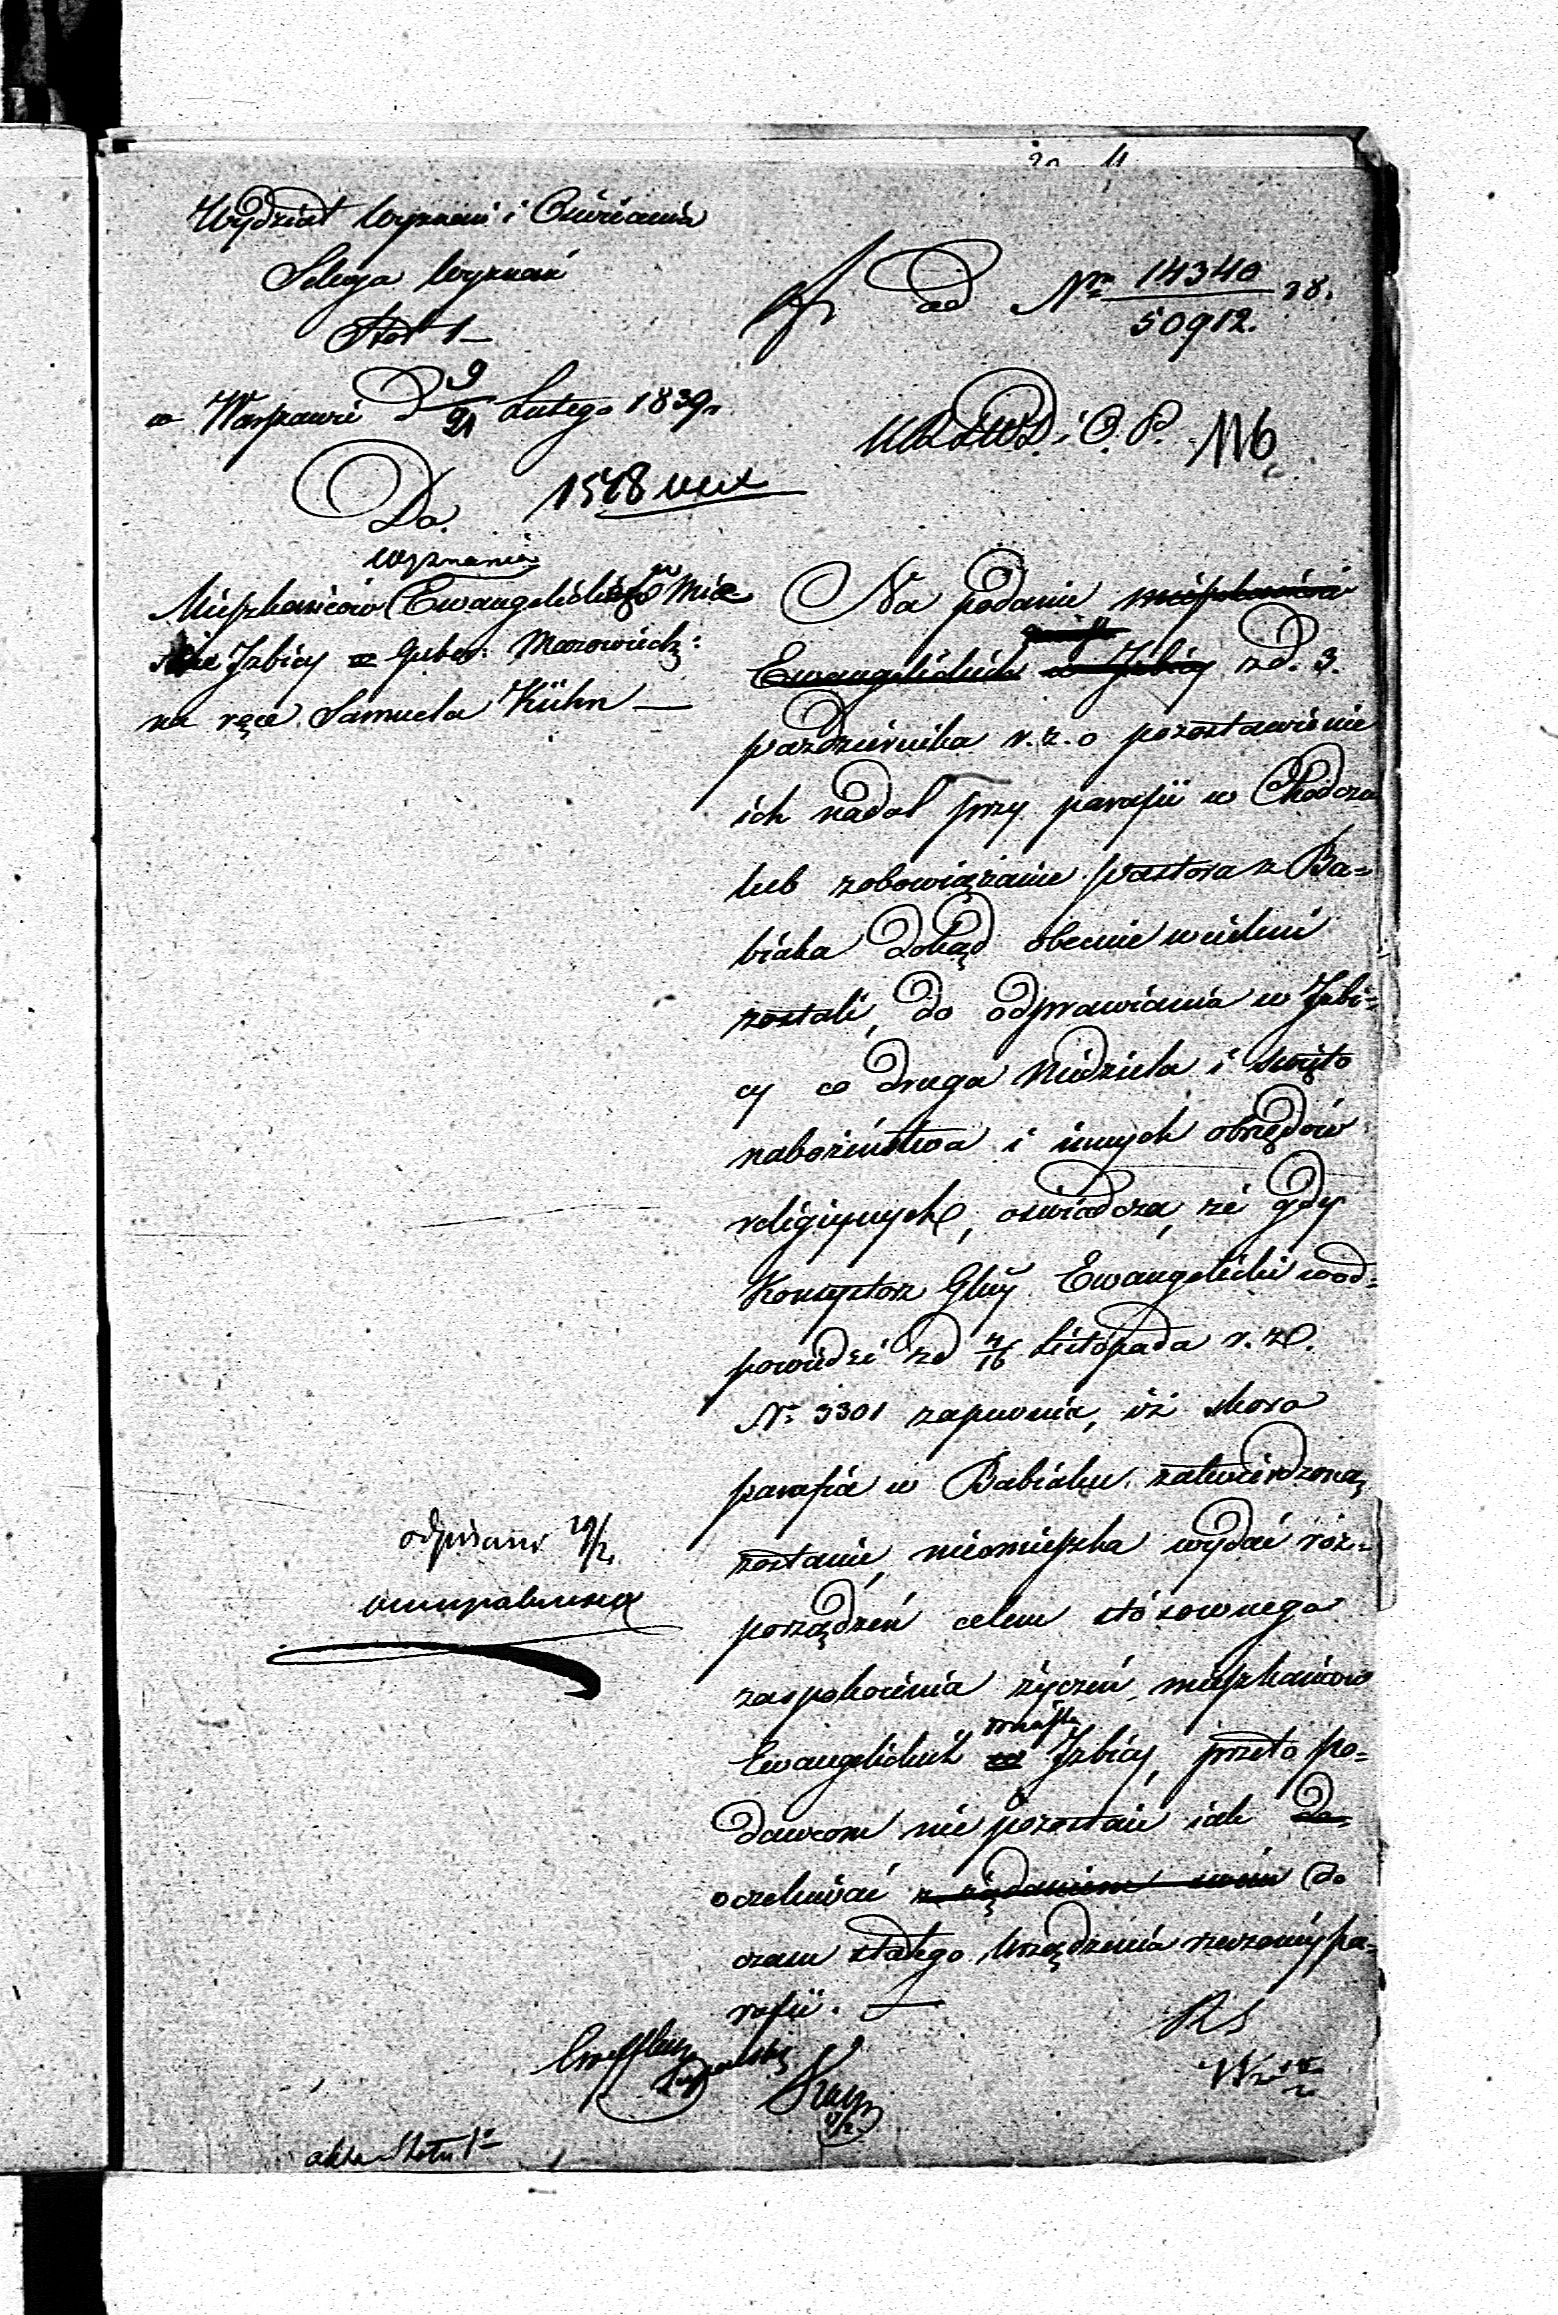 Wydział Wyznań i Oświecenia
Sekcya Wyznań
Stół 1
ad Nro 14340/50912. 38.
w Warszawie d 9/21 Lutego 1839 r.
K.R.S.W.D. i O.P. 116
Do 1578
wyznania
Mieszkańców Ewangelickiego w Mie-
ście Izbicy w Guber: Mazowieckz:
na ręce Samuela Kühn —
Na podanie mieszkańców
Ewangelickich w Izbicy z d. 3.
października r. z. o pozostawienie
ich nadal przy parafii w Chodczu
lub zobowiązanie pastora z Ba-
biaka dokąd obecnie wcieleni
zostali, do odprawiania w Izbi-
cy co druga Niedziela i święto
nabożeństwa i innych obrzędów
religijnych, oświadcza, że gdy
Konsystorz Glny Ewangelicki w od-
powiedzi z d 4/16 Listopada r. z.
Nr 3301 zapewnia, iż skoro
parafia w Babiaku zatwierdzoną
zostanie, nieomieszka wydać roz-
porządzeń celem stósownego
zaspokoienia życzeń mieszkańców
miasta
Ewangelickich w Izbicy, przeto po-
dawcom nie pozostaie iak do-
oczekiwać z żądaniem swém do
czasu stałego urządzenia rzeczonéj pa-
rafii. —
odpisano 19/2
akta Stołu 1o